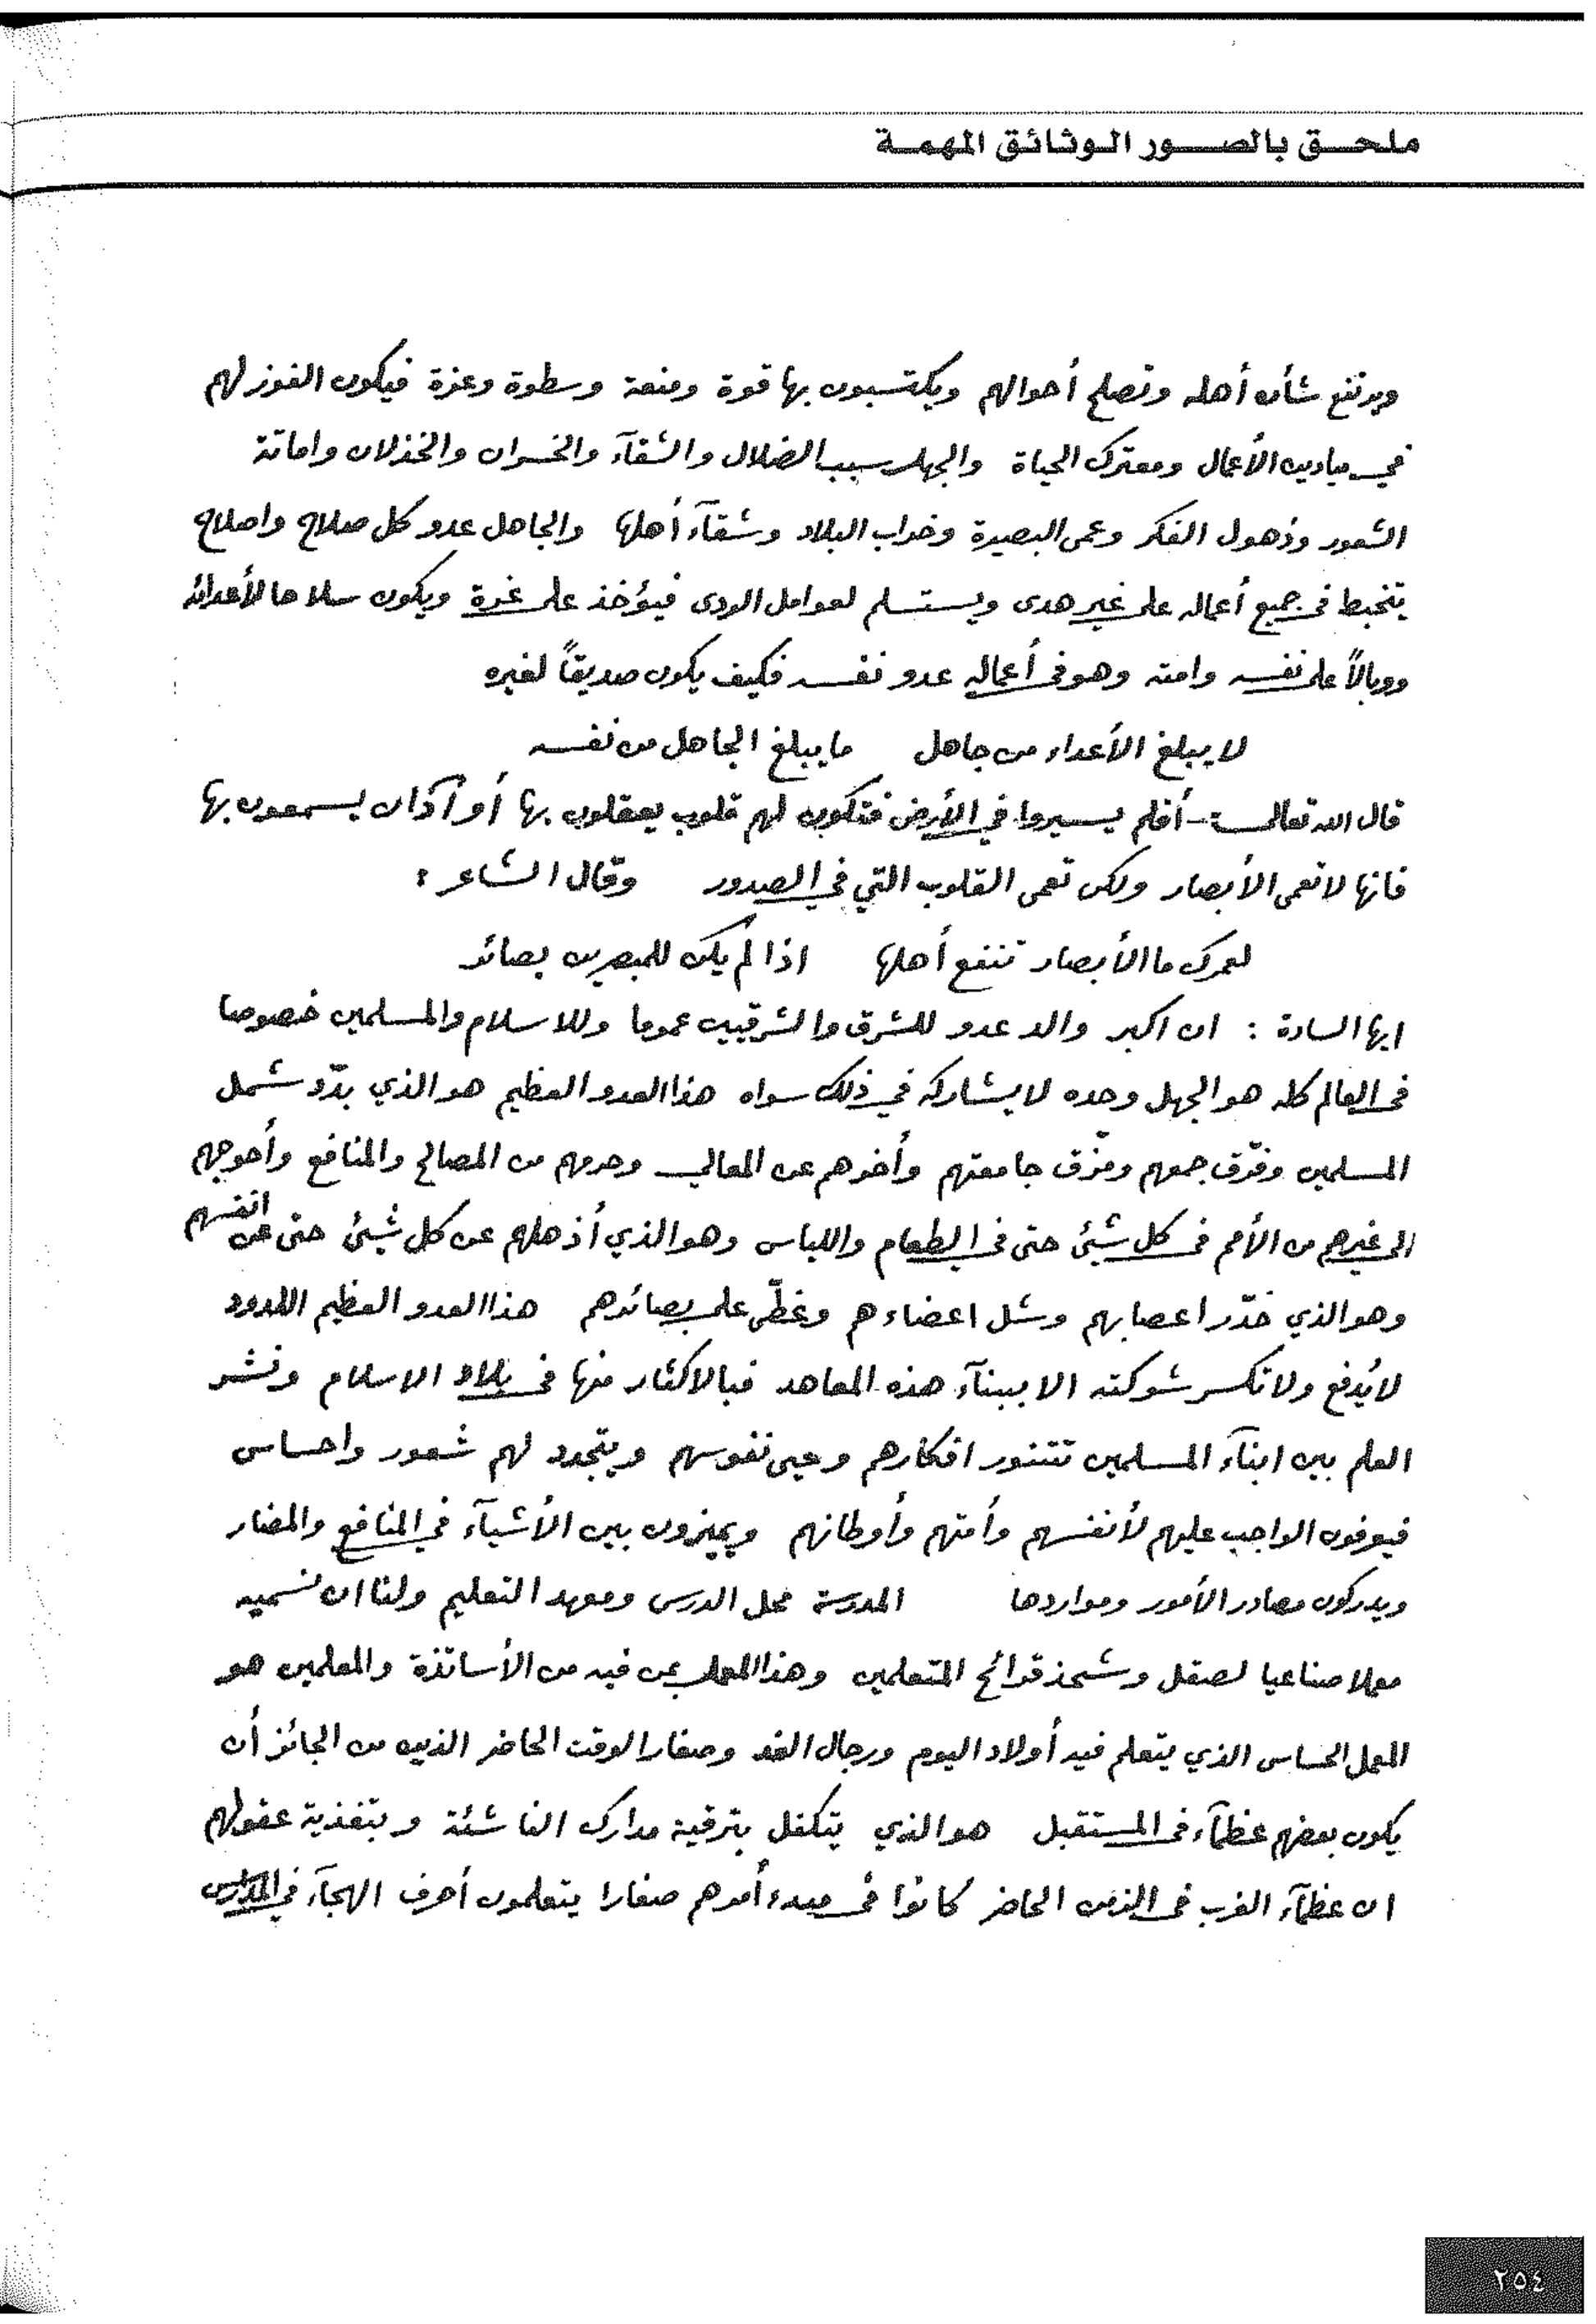 ملحق بالصور الوثائق المهمة
ويرتفع شأن أهله وتصلح أحوالهم ويكتسبون بها قوة ومنعة وسطوة وعزة فيكون الفوز لهم
في ميادين الأعمال ومعترك الحياة والجهل سبب الضلال والشقآء والخسران والخذلان واماتة
الشعور وذهول الفكر وعمى البصيرة وخراب البلاد وشقآء أهلها والجاهل عدو كل صلاح واصلاح
يتخبط في جميع أعماله على غير هدى ويستسلم لعوامل الردى فيؤخذ على غرة ويكون سلاحا لأعدائه
ووبالاً على نفسه وامته وهو في أعماله عدو نفسه فكيف يكون صديقاً لغيره
لا يبلغ الأعداء من جاهل ما يبلغ الجاهل من نفسه
قال الله تعالى - أفلم يسيروا في الأرض فتكون لهم قلوب يعقلون بها أو آذان يسمعون بها
فانها لا تعمى الأبصار ولكن تعمى القلوب التي في الصدور وقال الشاعر :
لعمرك ما الأبصار تنفع أهلها اذا لم يكن للمبصرين بصائر
ايها السادة : ان اكبر والد عدو للشرق والشرقيين عموما وللاسلام والمسلمين خصوصا
في العالم كله هو الجهل وحده لا يشاركه في ذلك سواه هذا العدو العظيم هو الذي بدّد شمل
المسلمين وفرّق جمعهم ومزّق جامعتهم وأخرهم عن المعالي وحرمهم من المصالح والمنافع وأحوجهم
الى غيرهم من الأمم في كل شيئ حتى في الطعام واللباس وهو الذي أذهلهم عن كل شيئ حتى عن انفسهم
وهو الذي خدّر اعصابهم وشل اعضاءهم وغطّى على بصائرهم هذا العدو العظيم اللدود
لا يُدفع ولا تكسر شوكته الا ببنآء هذه المعاهد فبالاكثار منها في بلاد الاسلام ونشر
العلم بين ابنآء المسلمين تتنور افكارهم وتحيى نفوسهم ويتجدد لهم شعور واحساس
فيعرفون الواجب عليهم لأنفسهم وأمتهم وأوطانهم ويميزون بين الأشيآء في المنافع والمضار
ويدركون مصادر الأمور ومواردها المدرسة محل الدرس ومعهد التعليم ولنا ان نسميه
معملا صناعيا لصقل وشحذ قرائح المتعلمين وهذا المعمل بمن فيه من الأساتذة والمعلمين هو
المعمل الحساس الذي يتعلم فيه أولاد اليوم ورجال الغد وصغار الوقت الحاضر الذين من الجائز أن
يكون بعضهم عظمآء في المستقبل هو الذي يتكفل بترقية مدارك الناشئة وبتغذية عقولهم
ان عظمآء الغرب في الزمن الحاضر كانوا في مبدء أمرهم صغارا يتعلمون أحرف الهجآء في المدارس
٢٥٤